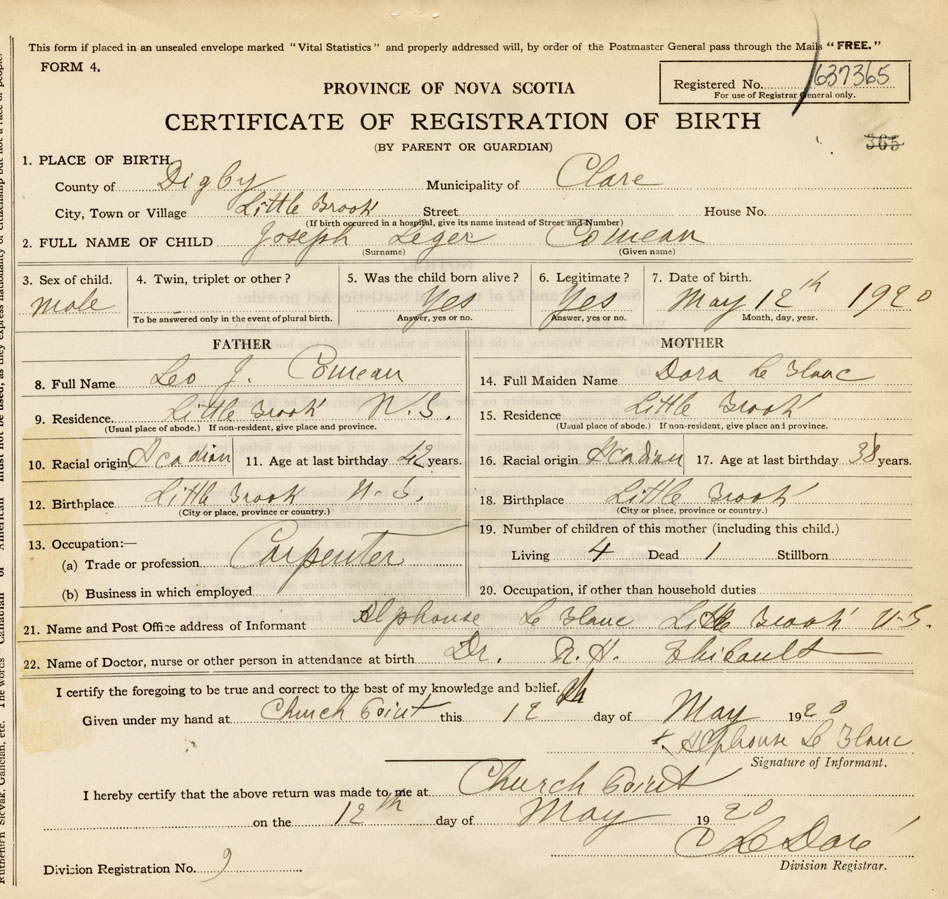 This form if placed in an unsealed envelope marked "Vital Statistics" and properly addressed will, by order of the Postmaster General pass through the Mails "FREE."
FORM 4.
Registered No. 637365
For use of Registrar General only.
PROVINCE OF NOVA SCOTIA
CERTIFICATE OF REGISTRATION OF BIRTH
(BY PARENT OR GUARDIAN)
365
1. PLACE OF BIRTH
County of Digby Municipality of Clare
City, Town or Village Little Brook Street House No.
(If birth occurred in a hospital, give its name instead of Street and Number)
2. FULL NAME OF CHILD Joseph Leger Comeau
(Surname) (Given name)
3. Sex of child. 4. Twin, triplet or other? 5. Was the child born alive? 6. Legitimate? 7. Date of birth.
male Yes Yes May 12th 1920
To be answered only in the event of plural birth. Answer, yes or no. Answer, yes or no. Month, day, year.
FATHER MOTHER
8. Full Name Leo J. Comeau
14. Full Maiden Name Dora Le Blanc
9. Residence Little Brook N.S.
(Usual place of abode.) If non-resident, give place and province.
15. Residence Little Brook
(Usual place of abode.) If non-resident, give place and province.
10. Racial origin Acadian 11. Age at last birthday 42 years.
16. Racial origin Acadian 17. Age at last birthday 38 years.
12. Birthplace Little Brook N.S.
(City or place, province or country.)
18. Birthplace Little Brook
(City or place, province or country.)
13. Occupation:—
(a) Trade or profession Carpenter
(b) Business in which employed
19. Number of children of this mother (including this child.)
Living 4 Dead 1 Stillborn
20. Occupation, if other than household duties
21. Name and Post Office address of Informant Alphonse Le Blanc Little Brook N.S.
22. Name of Doctor, nurse or other person in attendance at birth Dr. Thibault
I certify the foregoing to be true and correct to the best of my knowledge and belief.
Given under my hand at Church Point this 12th day of May 1920
Alphonse Le Blanc
Signature of Informant.
I hereby certify that the above return was made to me at Church Point
on the 12th day of May 1920
Division Registrar.
Division Registration No. 9